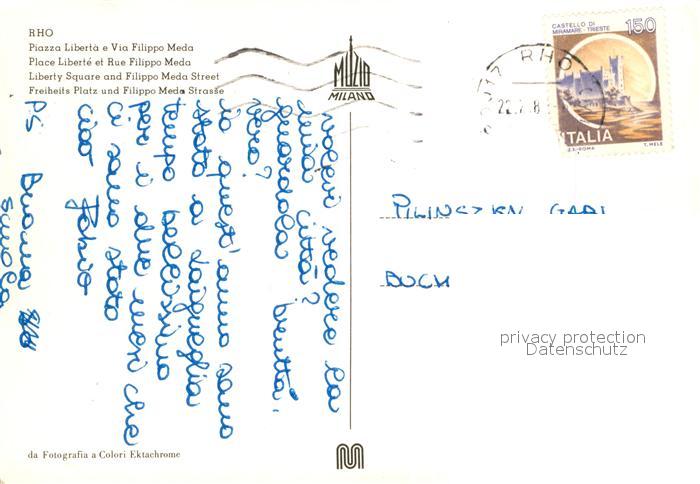 RHO
Piazza Libertà e Via Filippo Meda
Place Liberté et Rue Filippo Meda
Liberty Square and Filippo Meda Street
Freiheits Platz und Filippo Meda Strasse
MUZIO
MILANO
CASTELLO DI
MIRAMARE - TRIESTE
150
ITALIA
I.P.Z.S.-ROMA
T. MELE
RHO
22.7.8
volevi vedere la
mia città?
guardala brutta,
vero?
io quest'anno sono
stato a Laigueglia
tempo bellissimo
per i due mesi che
ci sono stato
ciao Fabio
PS Buona
scuola
GABI
BUCH
privacy protection
Datenschutz
da Fotografia a Colori Ektachrome